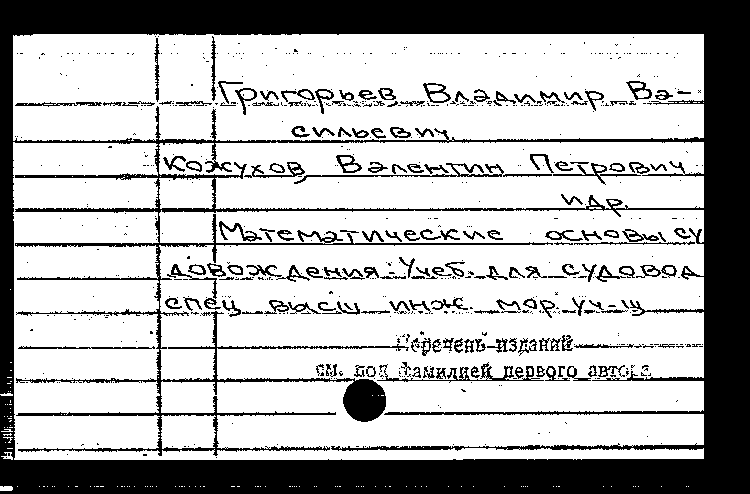 Григорьев Владимир Ва-
сильевич.
Кожухов Валентин Петрович
и др.
Математические основы су
довождения: Учеб. для судовод
спец высш инж. мор уч-щ
Перечень изданий
см. под фамилией первого автора